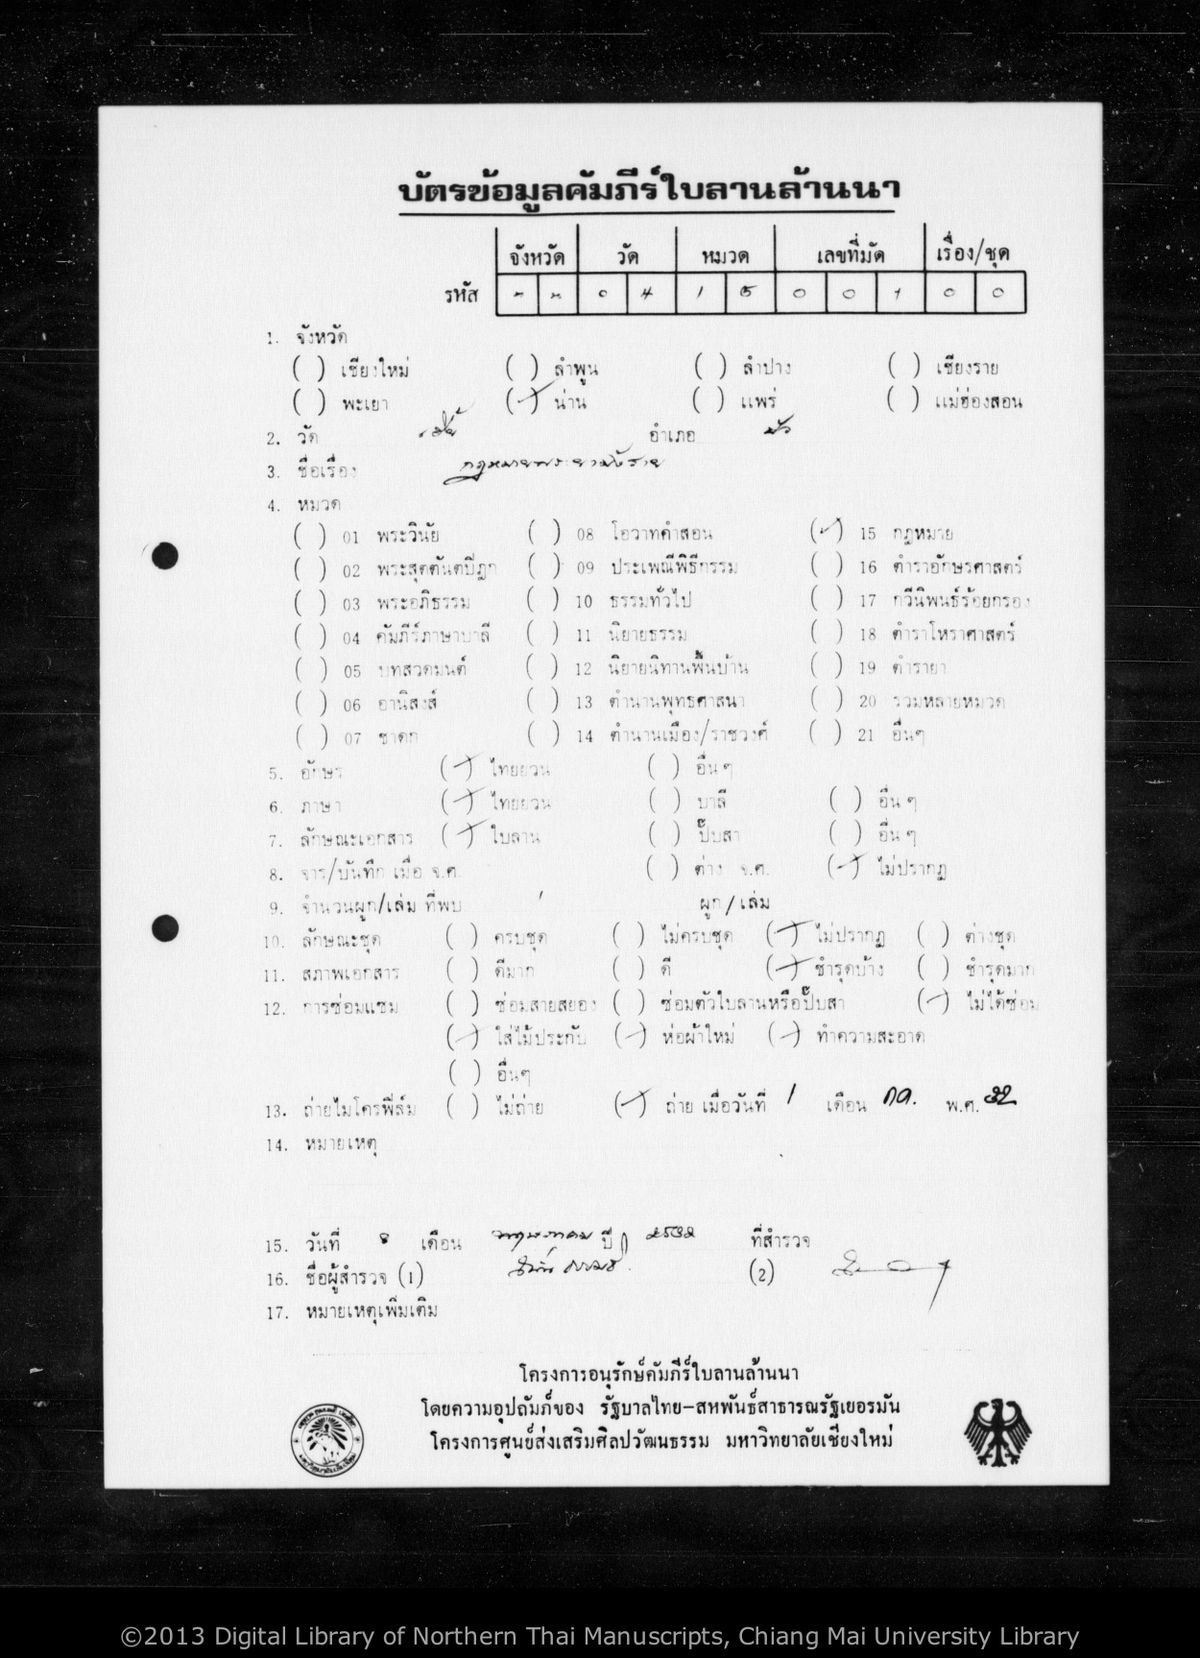 บัตรข้อมูลคัมภีร์ใบลานล้านนา
จังหวัด วัด หมวด เลขที่มัด เรื่อง/ชุด
รหัส 0 4 1 5 0 0 1 0 0
1. จังหวัด
( ) เชียงใหม่ ( ) ลำพูน ( ) ลำปาง ( ) เชียงราย
( ) พะเยา (✓) น่าน ( ) แพร่ ( ) แม่ฮ่องสอน
2. วัด อำเภอ ปัว
3. ชื่อเรื่อง กฎหมายพระยามังราย
4. หมวด
( ) 01 พระวินัย ( ) 08 โอวาทคำสอน (✓) 15 กฎหมาย
( ) 02 พระสุตตันตปิฎก ( ) 09 ประเพณีพิธีกรรม ( ) 16 ตำราอักษรศาสตร์
( ) 03 พระอภิธรรม ( ) 10 ธรรมทั่วไป ( ) 17 กวีนิพนธ์ร้อยกรอง
( ) 04 คัมภีร์ภาษาบาลี ( ) 11 นิยายธรรม ( ) 18 ตำราโหราศาสตร์
( ) 05 บทสวดมนต์ ( ) 12 นิยายนิทานพื้นบ้าน ( ) 19 ตำรายา
( ) 06 อานิสงส์ ( ) 13 ตำนานพุทธศาสนา ( ) 20 รวมหลายหมวด
( ) 07 ชาดก ( ) 14 ตำนานเมือง/ราชวงศ์ ( ) 21 อื่นๆ
5. อักษร (✓) ไทยยวน ( ) อื่น ๆ
6. ภาษา (✓) ไทยยวน ( ) บาลี ( ) อื่น ๆ
7. ลักษณะเอกสาร (✓) ใบลาน ( ) ปั๊บสา ( ) อื่น ๆ
8. จาร/บันทึก เมื่อ จ.ศ. ( ) ต่าง จ.ศ. (✓) ไม่ปรากฏ
9. จำนวนผูก/เล่ม ที่พบ 1 ผูก/เล่ม
10. ลักษณะชุด ( ) ครบชุด ( ) ไม่ครบชุด (✓) ไม่ปรากฏ ( ) ต่างชุด
11. สภาพเอกสาร ( ) ดีมาก ( ) ดี (✓) ชำรุดบ้าง ( ) ชำรุดมาก
12. การซ่อมแซม ( ) ซ่อมสายสยอง ( ) ซ่อมตัวใบลานหรือปั๊บสา (✓) ไม่ได้ซ่อม
(✓) ใส่ไม้ประกับ (✓) ห่อผ้าใหม่ (✓) ทำความสะอาด
( ) อื่นๆ
13. ถ่ายไมโครฟิล์ม ( ) ไม่ถ่าย (✓) ถ่าย เมื่อวันที่ 1 เดือน กค. พ.ศ. 32
14. หมายเหตุ
15. วันที่ 8 เดือน พฤษภาคม ปี 2532 ที่สำรวจ
16. ชื่อผู้สำรวจ (1) (2)
17. หมายเหตุเพิ่มเติม
โครงการอนุรักษ์คัมภีร์ใบลานล้านนา
โดยความอุปถัมภ์ของ รัฐบาลไทย-สหพันธ์สาธารณรัฐเยอรมัน
โครงการศูนย์ส่งเสริมศิลปวัฒนธรรม มหาวิทยาลัยเชียงใหม่
©2013 Digital Library of Northern Thai Manuscripts, Chiang Mai University Library